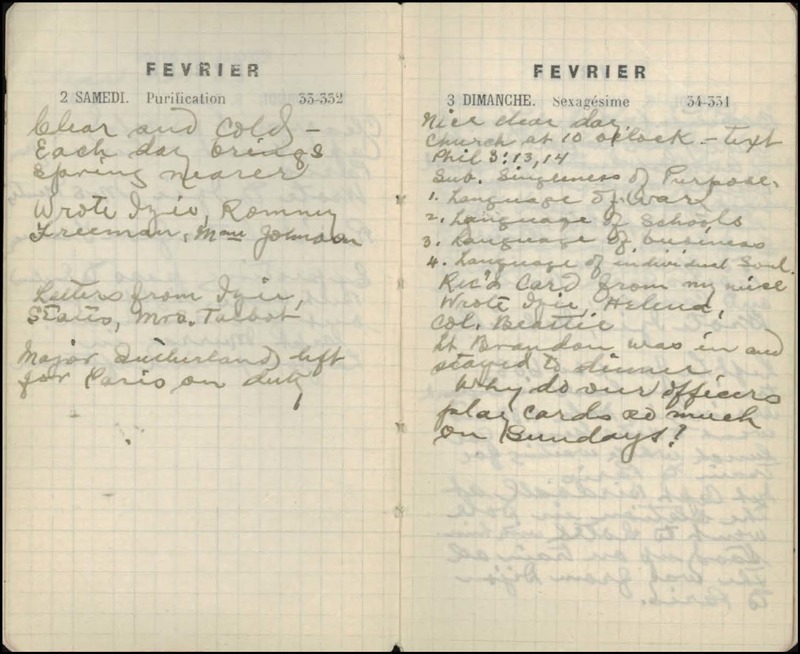 FEVRIER
2 SAMEDI. Purification 33-332
Clear and cold –
Each day brings
Spring nearer
Wrote Izie, Romney
Freeman, Mme Johnson
Letters from Izie,
States, Mrs. Talbot
Major Sutherland left
for Paris on duty
FEVRIER
3 DIMANCHE. Sexagésime 34-331
Nice clear day
Church at 10 o'clock – text
Phil 3:13,14
Sub. Singleness of Purpose.
1. Language of War
2. Language of Schools
3. Language of business
4. Language of individual Soul.
Rec'd Card from my niece
Wrote Izie, Helena,
Col. Beattie
Lt Brandon was in and
stayed to dinner
Why do our officers
play cards so much
on Sundays?